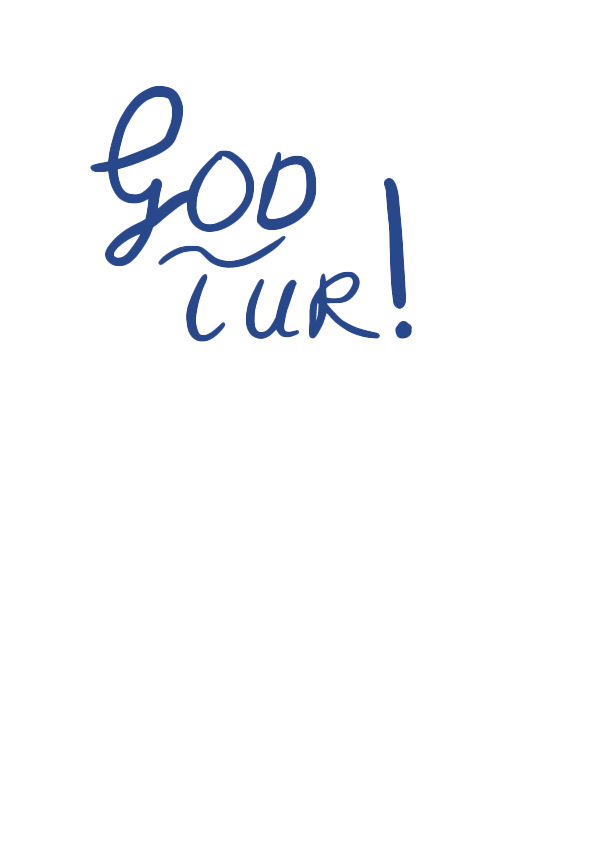 GOD
TUR!